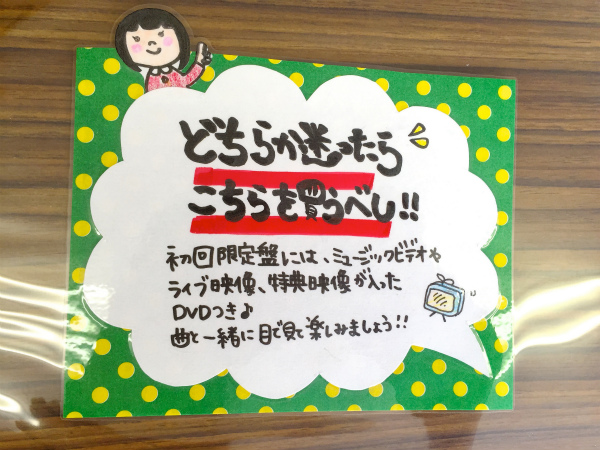 どちらか迷ったら
こちらを買うべし!!
初回限定盤には、ミュージックビデオや
ライブ映像、特典映像が入った
DVDつき♪
曲と一緒に目で見て楽しみましょう!!